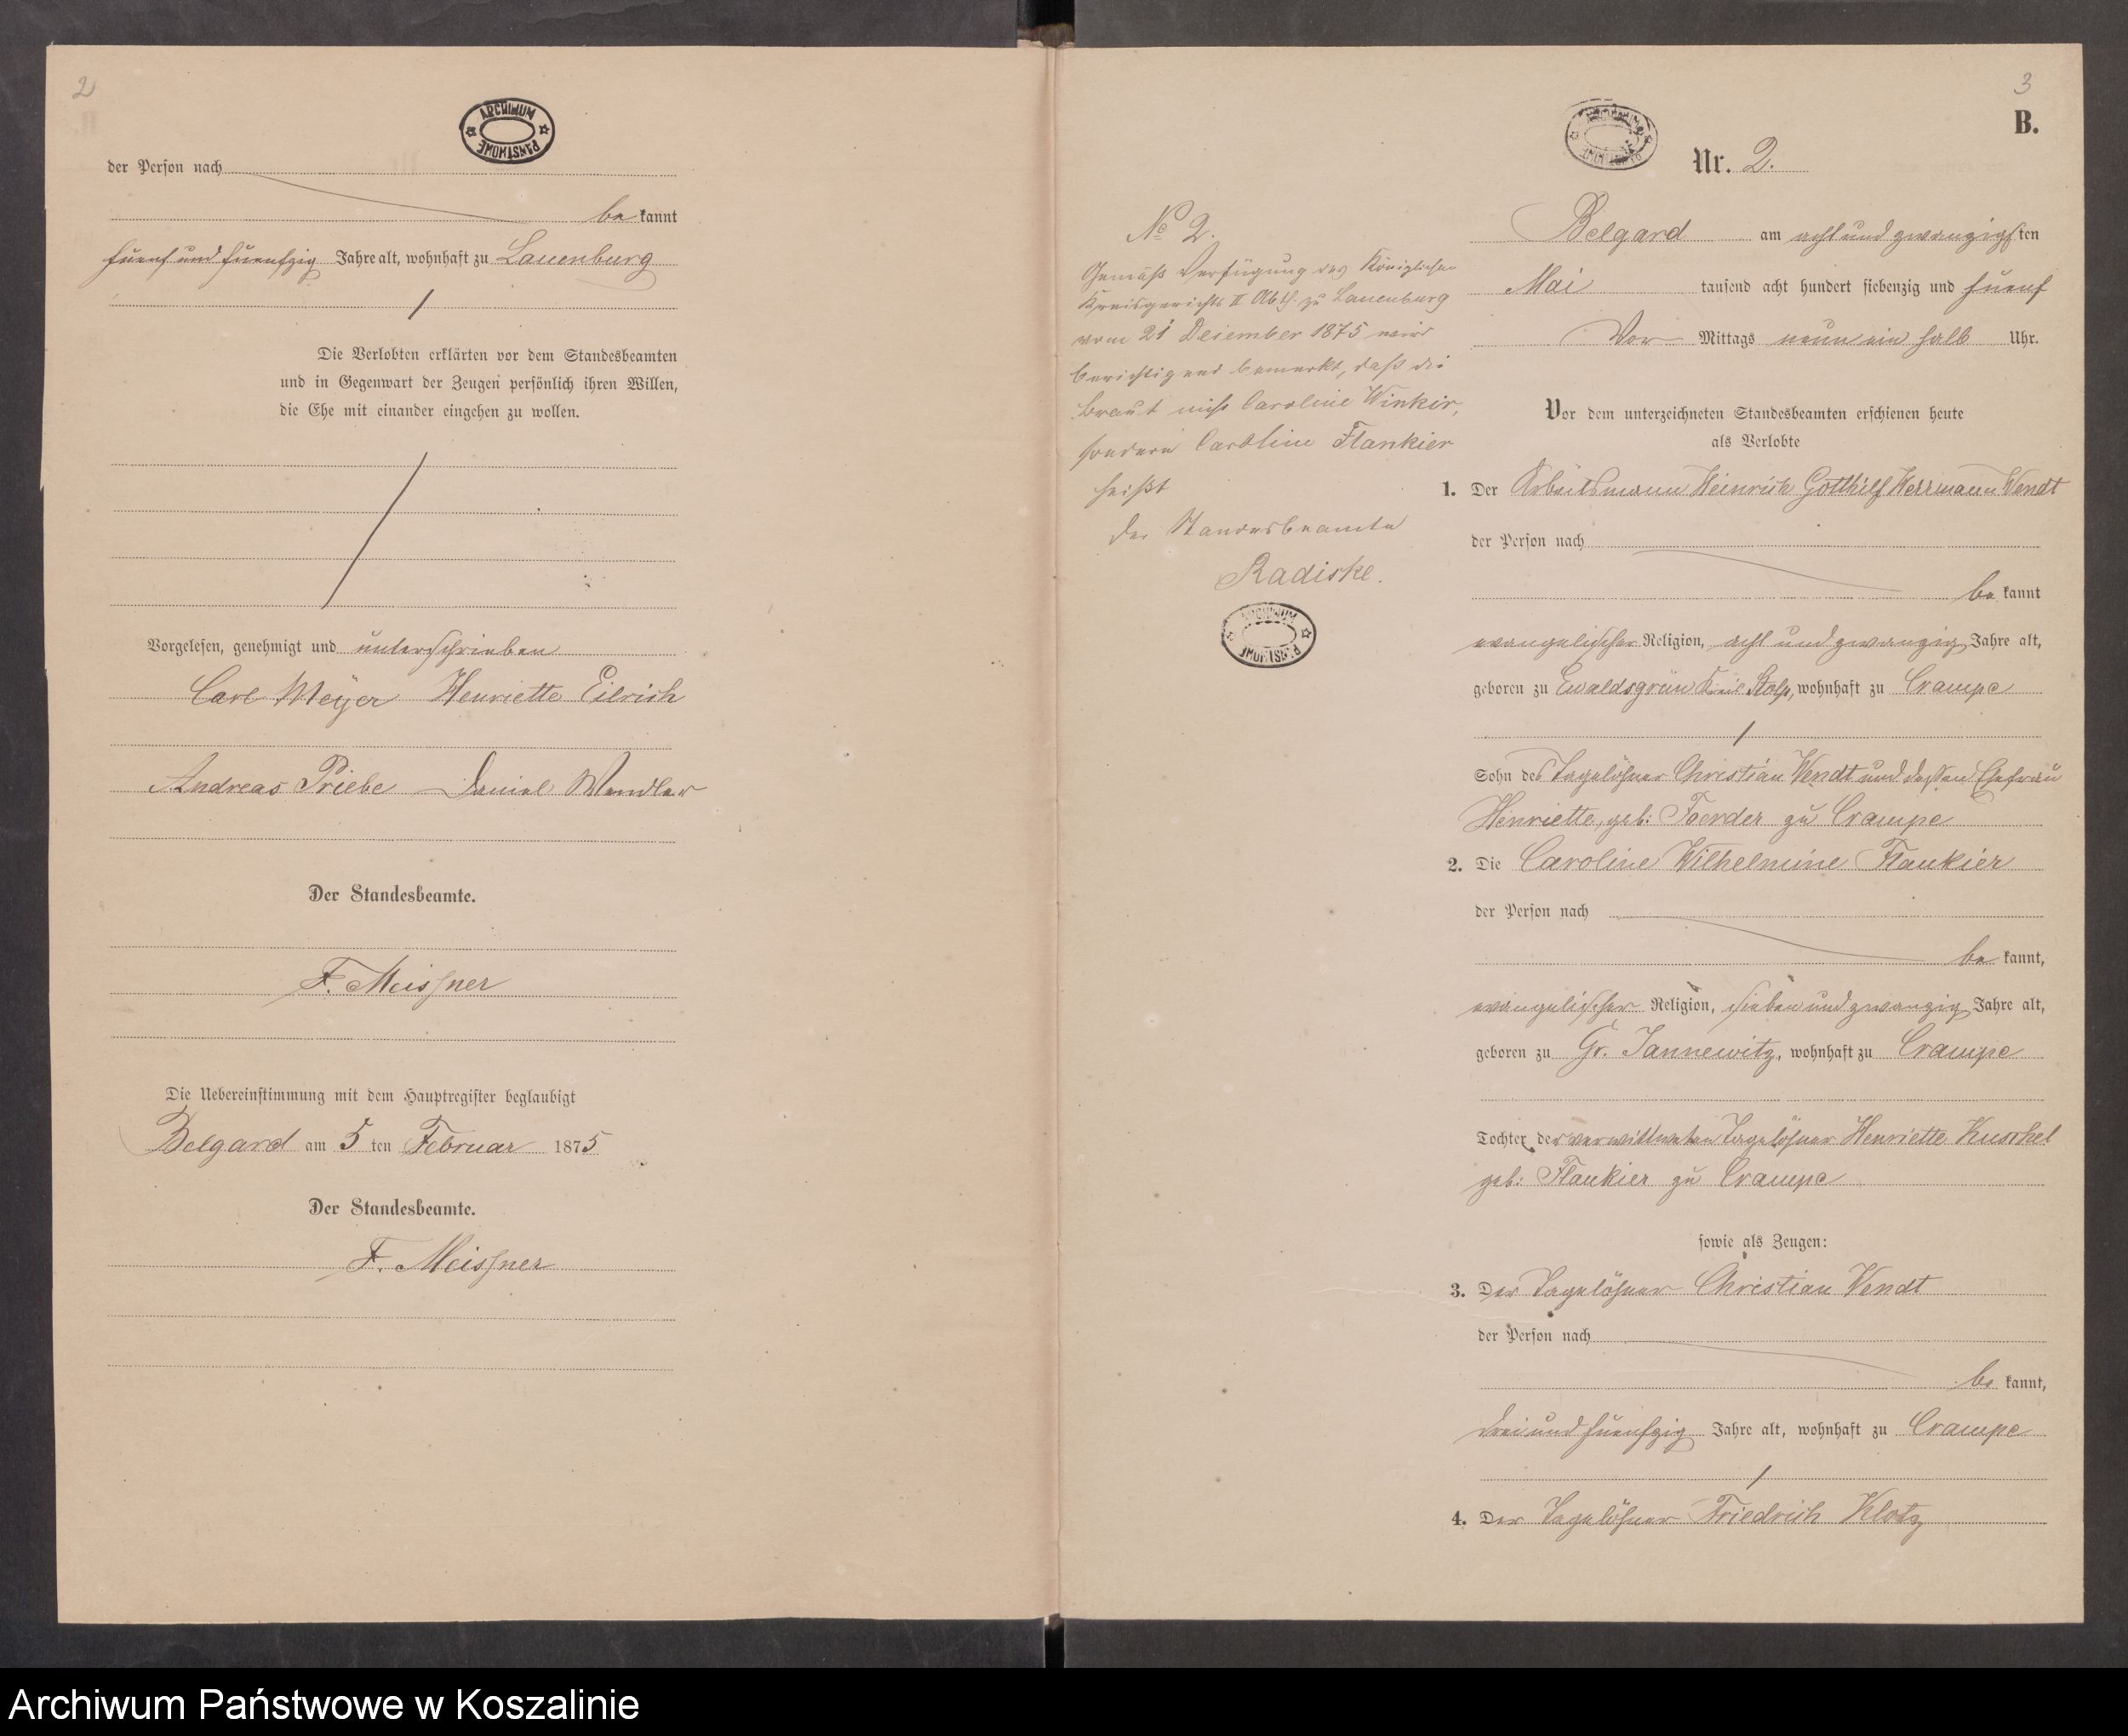 2
ARCHIWUM PAŃSTWOWE
der Person nach
be kannt
fuenf und fuenfzig Jahre alt, wohnhaft zu Lauenburg
Die Verlobten erklärten vor dem Standesbeamten
und in Gegenwart der Zeugen persönlich ihren Willen,
die Ehe mit einander eingehen zu wollen.
Vorgelesen, genehmigt und unterschrieben
Carl Meyer Henriette Eilrich
Andreas Priebe Daniel Wendler
Der Standesbeamte.
F. Meissner
Die Uebereinstimmung mit dem Hauptregister beglaubigt
Belgard am 5 ten Februar 1875
Der Standesbeamte.
F. Meissner
3
B.
ARCHIWUM PAŃSTWOWE
Nr. 2.
Belgard am acht und zwanzigsten
Mai tausend acht hundert siebenzig und fuenf
Vor Mittags neun ein halb Uhr.
Vor dem unterzeichneten Standesbeamten erschienen heute
als Verlobte
1. Der Arbeitsmann Heinrich Gotthilf Herrmann Wendt
der Person nach
be kannt
evangelischer Religion, acht und zwanzig Jahre alt,
geboren zu Ewaldsgrün Kreis Stolp, wohnhaft zu Crampe
Sohn des Tagelöhner Christian Wendt und dessen Ehefrau
Henriette, geb: Foerder zu Crampe
2. Die Caroline Wilhelmine Flankier
der Person nach
be kannt,
evangelischer Religion, sieben und zwanzig Jahre alt,
geboren zu Gr. Jannewitz, wohnhaft zu Crampe
Tochter der verwittweten Tagelöhner Henriette Kuschel
geb: Flankier zu Crampe
sowie als Zeugen:
3. Der Tagelöhner Christian Wendt
der Person nach
be kannt,
drei und fuenfzig Jahre alt, wohnhaft zu Crampe
4. Der Tagelöhner Friedrich Klotz
No 2.
Gemäß Verfügung des Königlichen
Kreisgerichts II Abth. zu Lauenburg
vom 21 Dezember 1875 wird
berichtigend bemerkt, daß die
Braut nicht Caroline Winkir,
sondern Caroline Flankier
heißt
Der Standesbeamte
Radiske.
ARCHIWUM PAŃSTWOWE
Archiwum Państwowe w Koszalinie